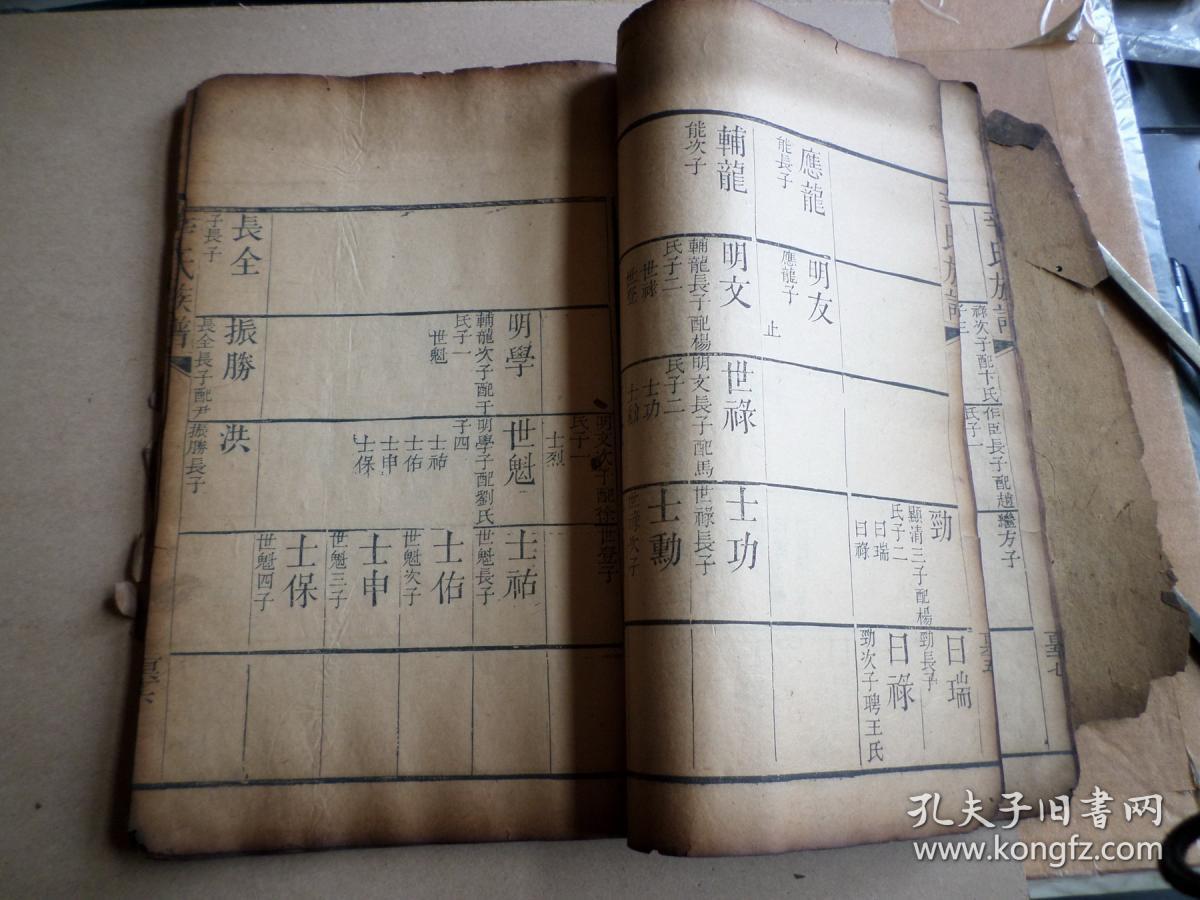 勁
顯清三子配楊
氏子二
日瑞
日祿
日瑞
勁長子
日祿
勁次子聘王氏
應龍
能長子
明友
應龍子
止
輔龍
能次子
明文
輔龍長子配楊
氏子二
世祿
世登
世祿
明文長子配馬
氏子二
士功
士功
世祿長子
士勳
世祿次子
明文次子配徐
氏子一
士烈
世登子
明學
輔龍次子配于
氏子一
世魁
世魁
明學子配劉氏
子四
士祐
士佑
士申
士保
士祐
世魁長子
士佑
世魁次子
士申
世魁三子
士保
世魁四子
長全
子長子
振勝
長全長子配尹
洪
振勝長子
氏族譜
祿次子配卞氏
子三
作臣長子配趙
氏子一
繼方子
孔夫子旧书网
www.kongfz.com